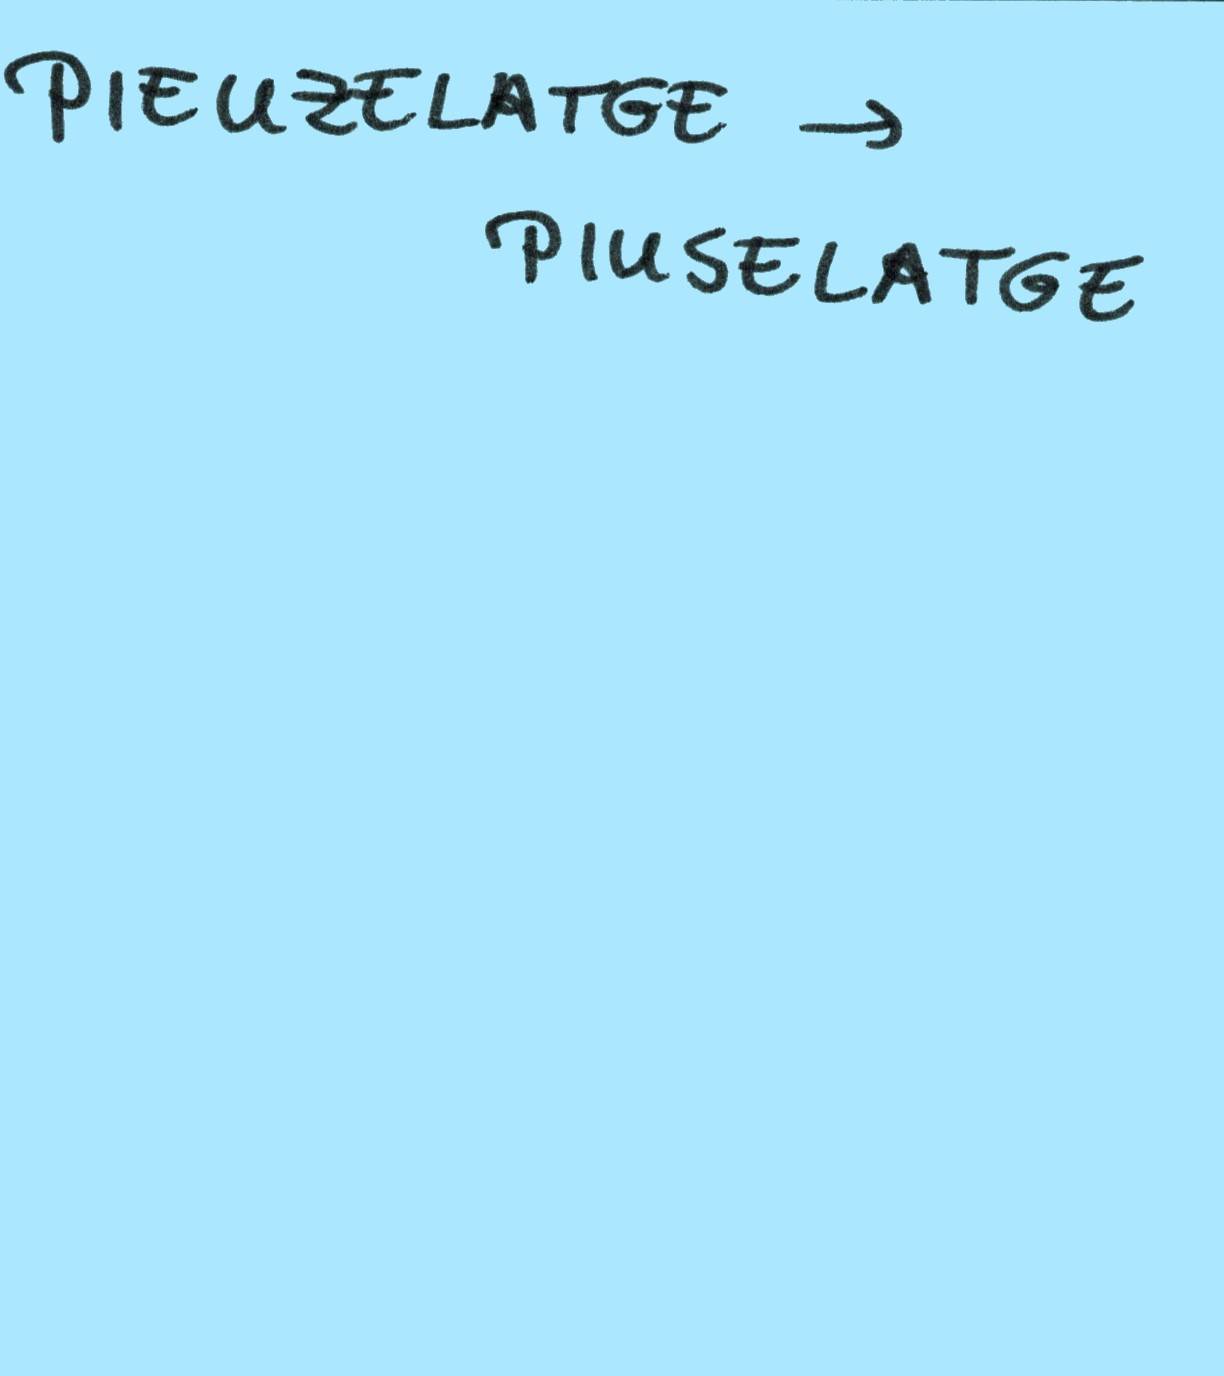 PIEUZELATGE →
PIUSELATGE